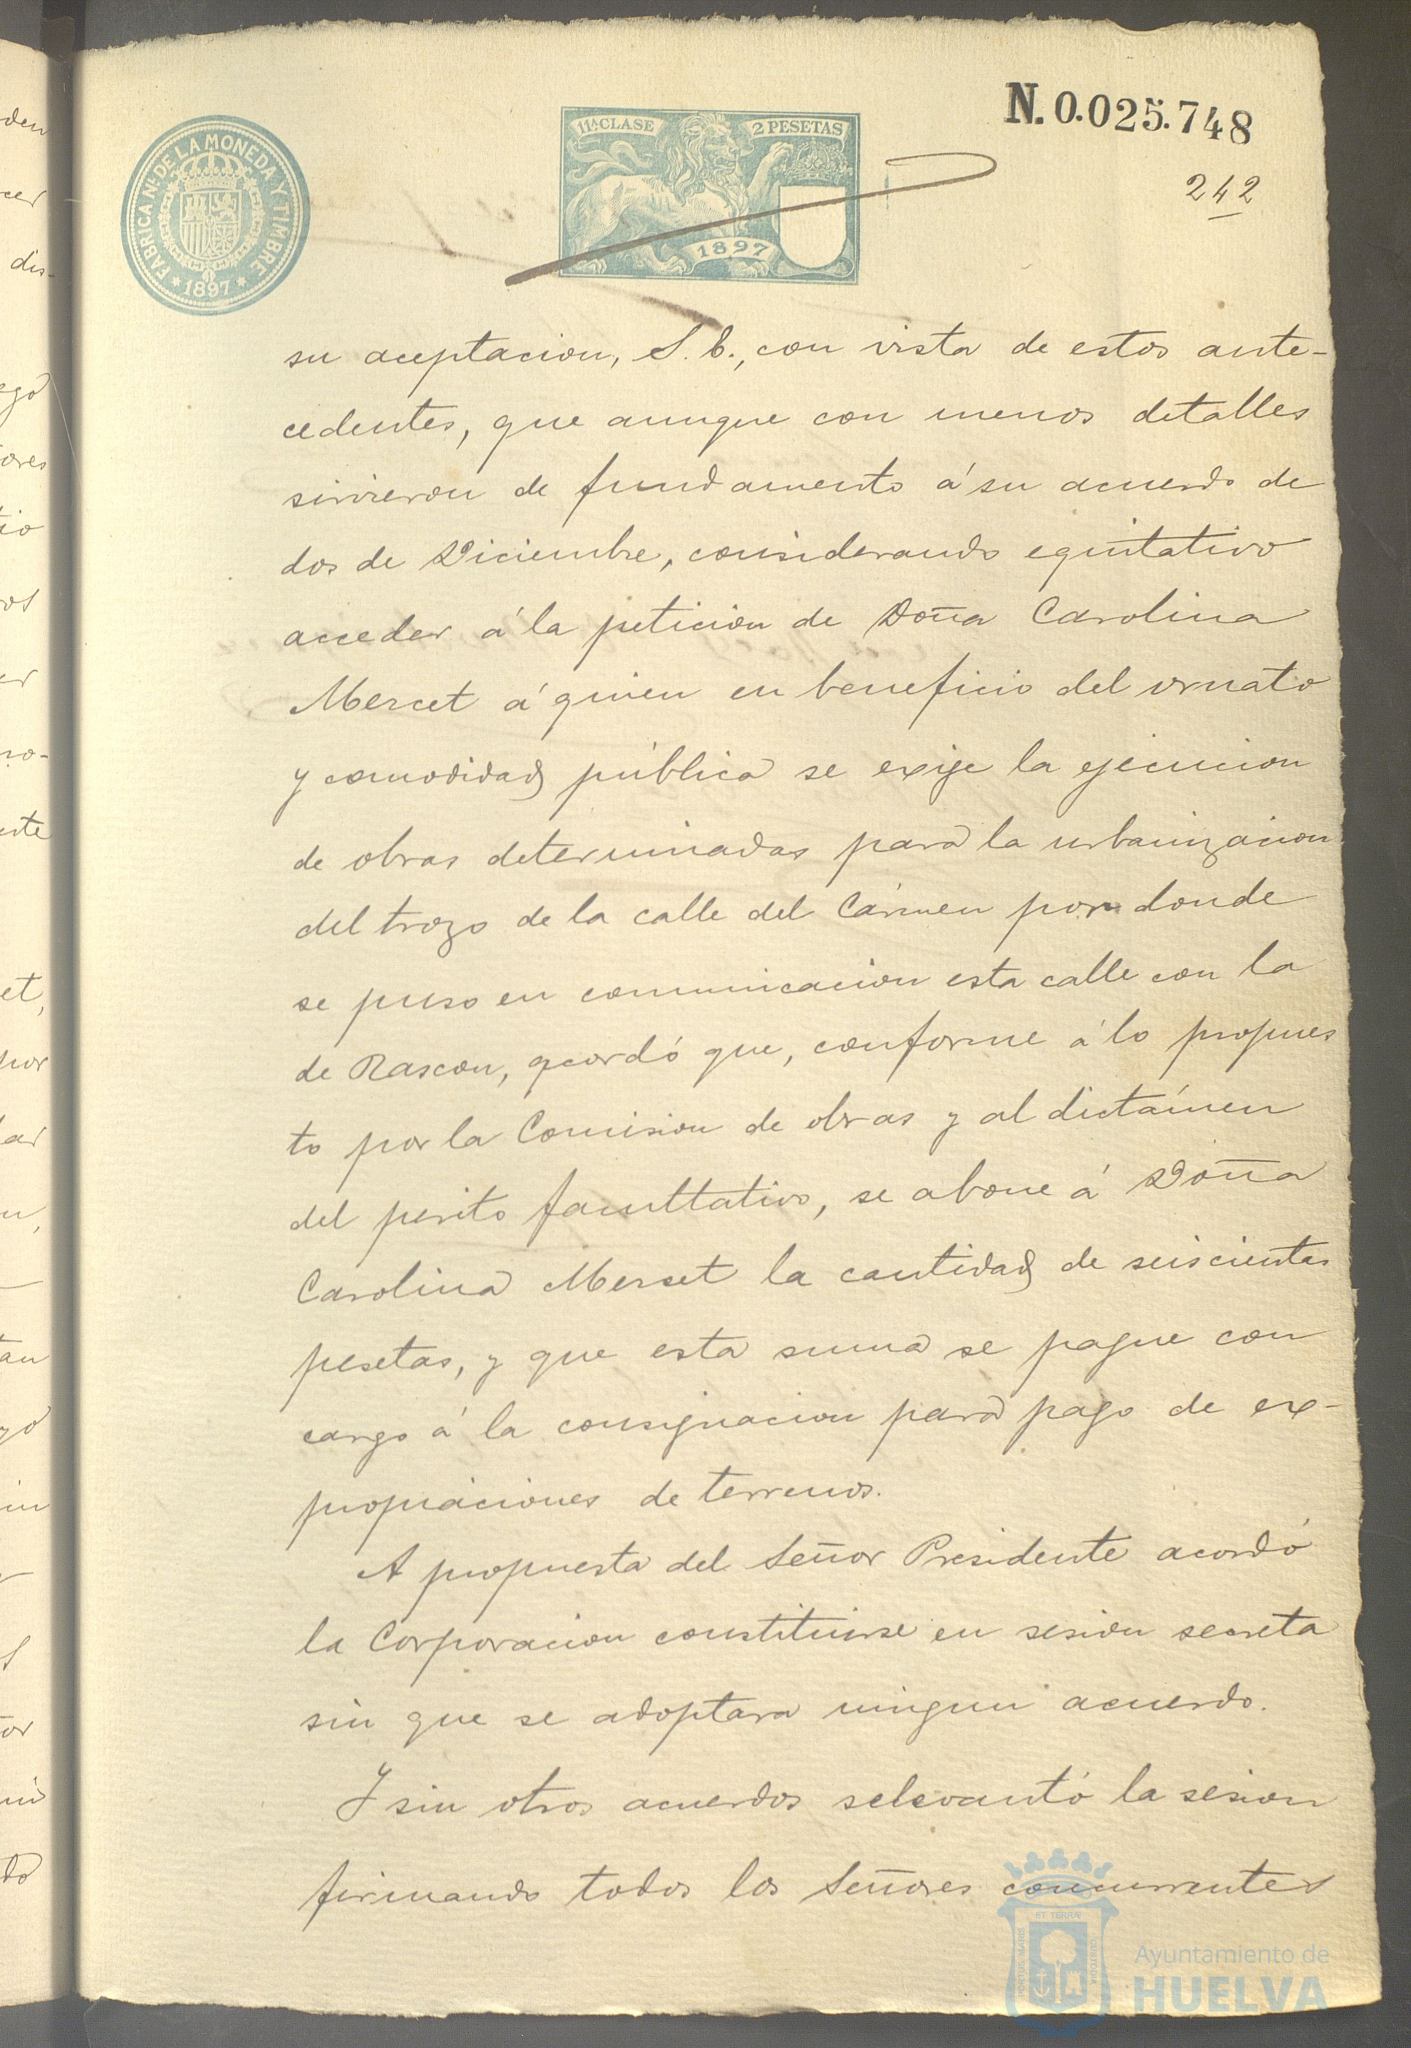 FABRICA NAL. DE LA MONEDA Y TIMBRE
* 1897 *
11ª CLASE
2 PESETAS
1897
N. 0.025.748
242
su aceptacion, S. E., con vista de estos ante-
cedentes, que aunque con menos detalles
sirvieron de fundamento á su acuerdo de
dos de Diciembre, considerando equitativo
acceder á la peticion de Doña Carolina
Mercet á quien en beneficio del ornato
y comodidad pública se exije la ejecucion
de obras determinadas para la urbanizacion
del trozo de la calle del Cármen por donde
se puso en comunicacion esta calle con la
de Rascon, acordó que, conforme á lo propues
to por la Comision de obras y al dictámen
del perito facultativo, se abone á Doña
Carolina Merset la cantidad de seiscientas
pesetas, y que esta suma se pague con
cargo á la consignacion para pago de ex-
propiaciones de terrenos.
A propuesta del Señor Presidente acordó
la Corporacion constituirse en sesion secreta
sin que se adoptara ningun acuerdo.
Y sin otros acuerdos se levantó la sesion
firmando todos los Señores concurrentes
Ayuntamiento de
HUELVA